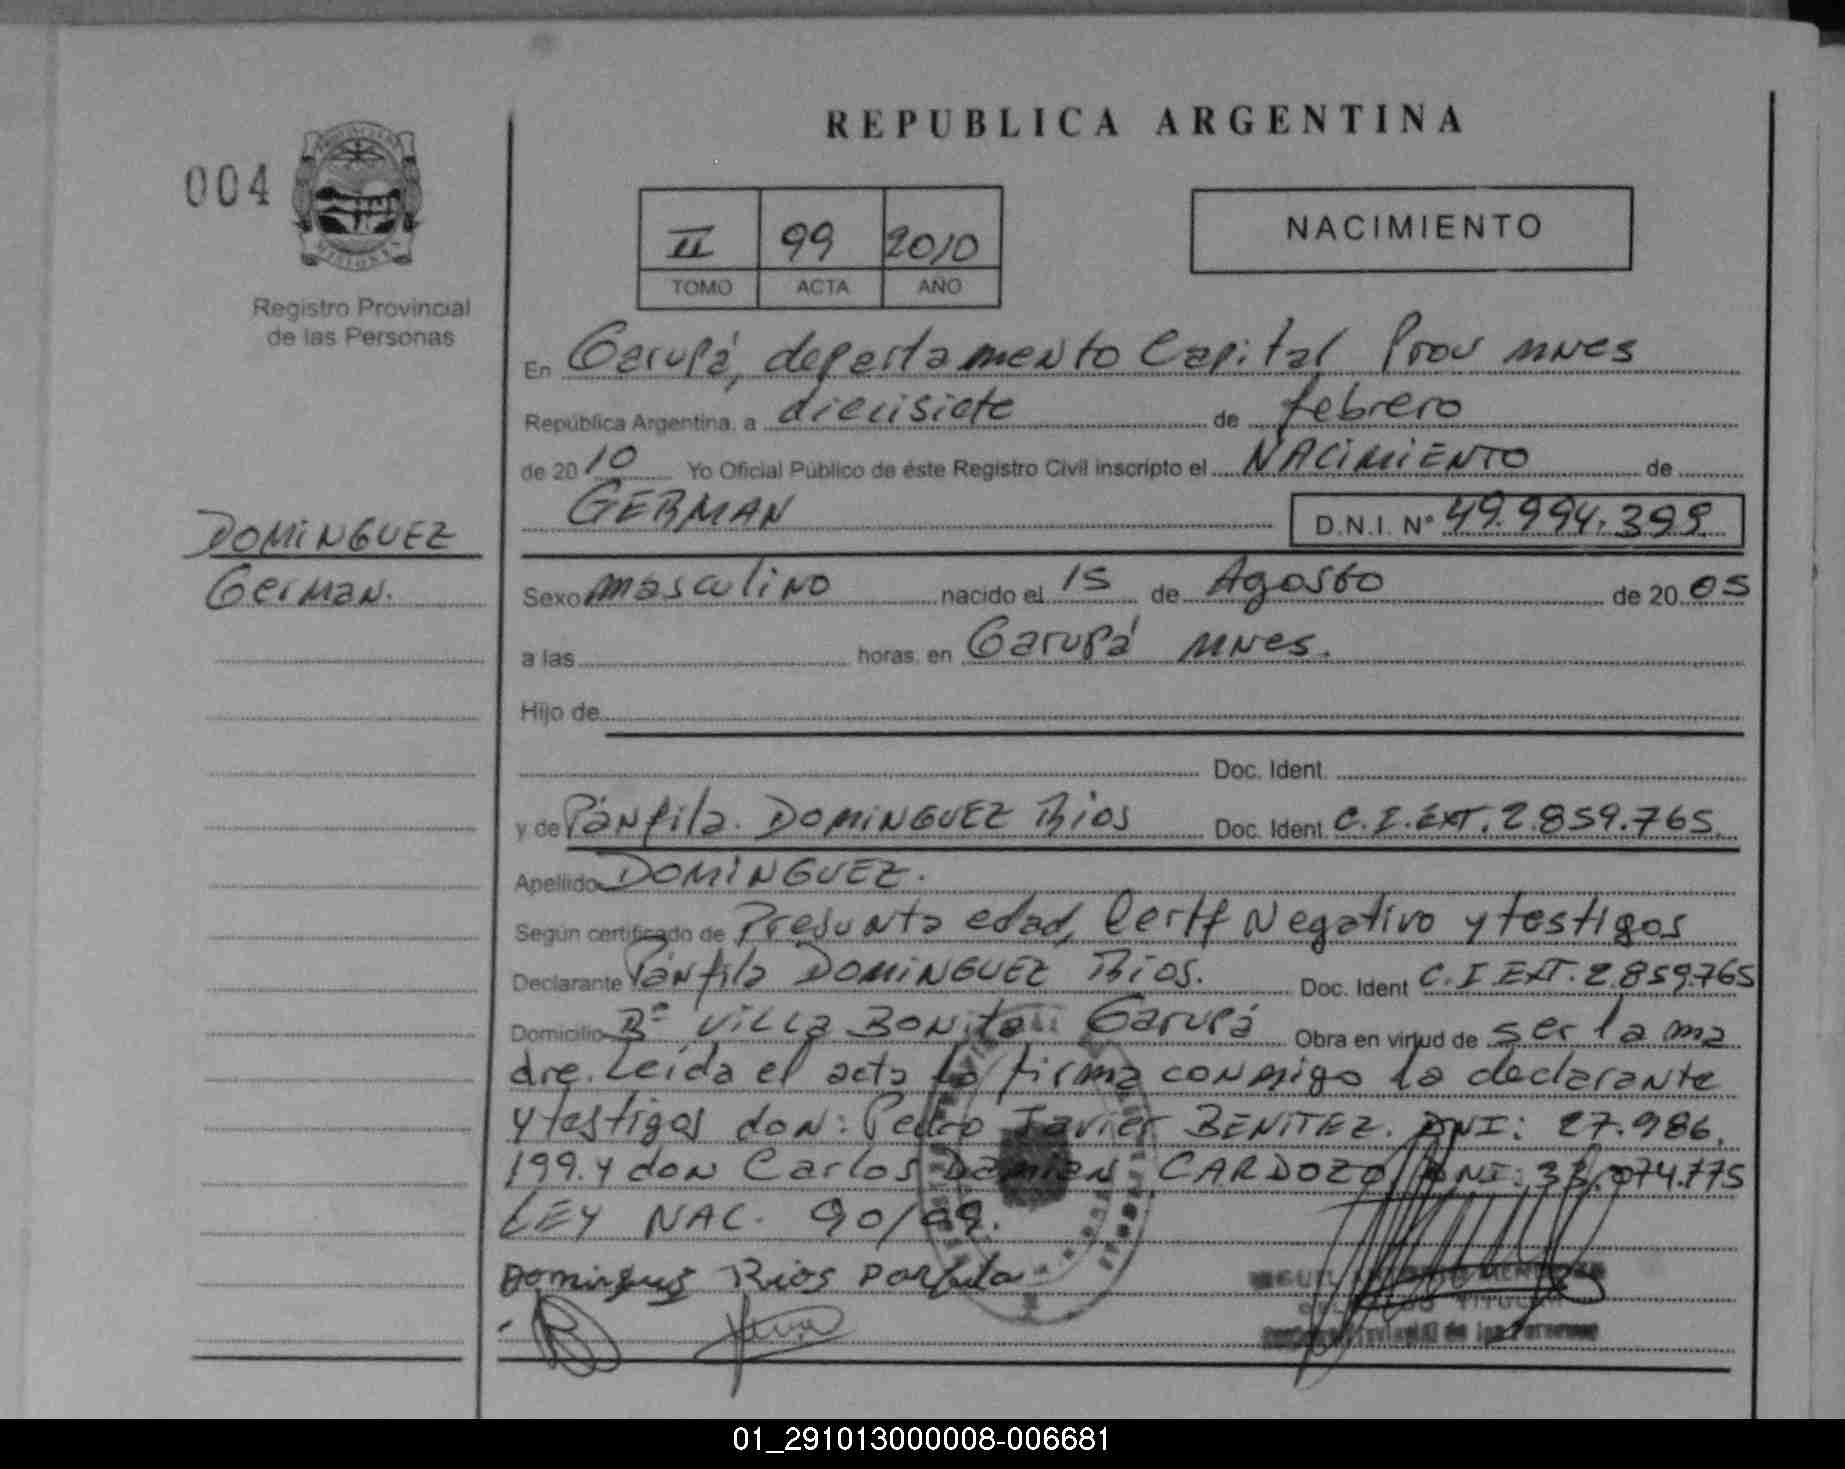 REPUBLICA ARGENTINA
004
II 99 2010
TOMO ACTA AÑO
NACIMIENTO
Registro Provincial
de las Personas
En Garupá, departamento Capital Prov MNES
República Argentina, a diecisiete de febrero
de 20 10 Yo Oficial Público de éste Registro Civil inscripto el NACIMIENTO de
GERMAN D.N.I. Nº 49.994.399
DOMINGUEZ
German.
Sexo masculino nacido el 15 de Agosto de 20 05
a las horas, en Garupá MNES.
Hijo de
Doc. Ident.
y de Pánfila DOMINGUEZ Rios Doc. Ident. C.I.EXT. 2.859.765.
Apellido DOMINGUEZ.
Según certificado de Presunta edad, Certf Negativo y testigos
Declarante Pánfila DOMINGUEZ Rios. Doc. Ident C.I EXT. 2.859.765
Domicilio Bº VILLA BONITA Garupá Obra en virtud de ser la ma
dre. Leída el acta la firma conmigo la declarante
y testigos don: Pedro Javier BENITEZ. DNI: 27.986.
199. y don Carlos Damian CARDOZO DNI: 33.074.775
LEY NAC.
Rios
TITULAR
de las Personas
01_291013000008-006681